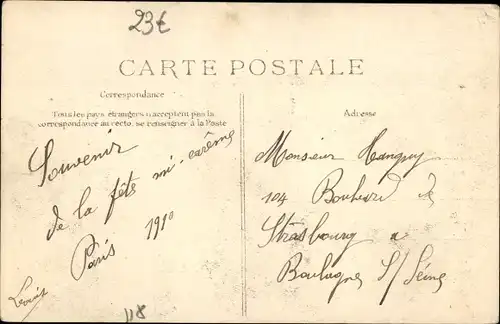 23€
CARTE POSTALE
Correspondance
Tous les pays étrangers n'acceptent pas la
correspondance au recto, se renseigner à la Poste
Souvenir
de la fête mi-carême
Paris 1910
Louis
118
Adresse
Monsieur Tanguy
104 Boulevard de
Strasbourg a
Boulogne S/Seine